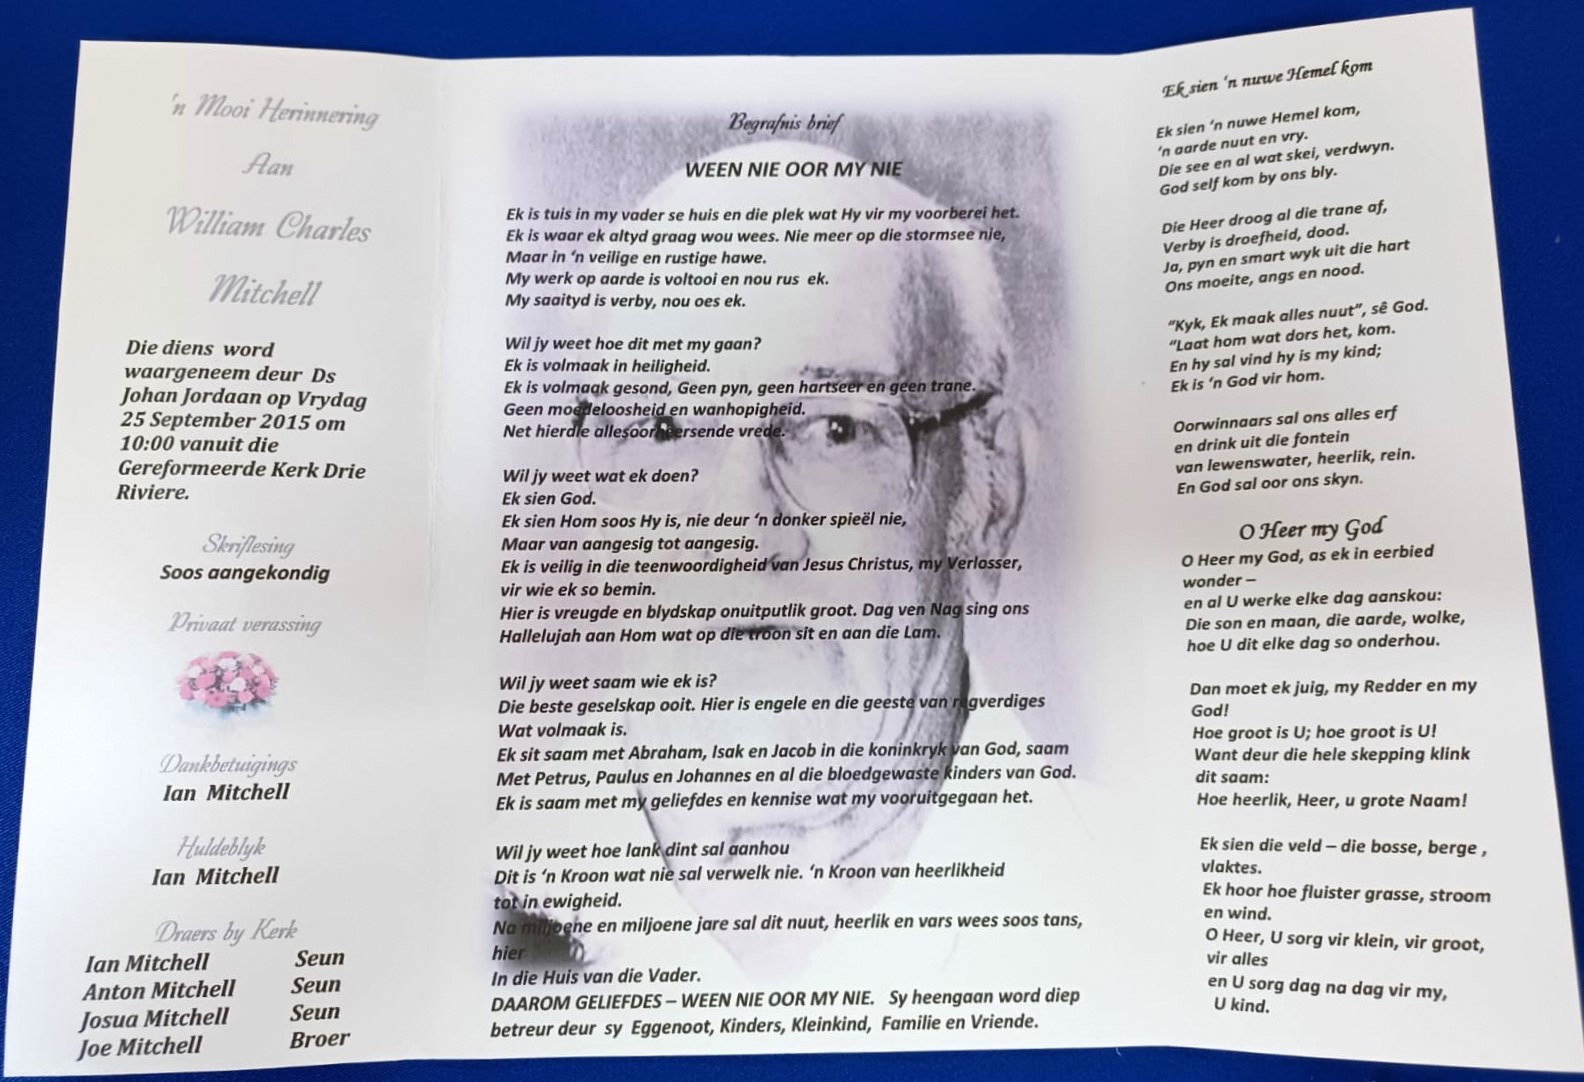 'n Mooi Herinnering
Aan
William Charles
Mitchell
Die diens word
waargeneem deur Ds
Johan Jordaan op Vrydag
25 September 2015 om
10:00 vanuit die
Gereformeerde Kerk Drie
Riviere.
Skriflesing
Soos aangekondig
Privaat verassing
Dankbetuigings
Ian Mitchell
Huldeblyk
Ian Mitchell
Draers by Kerk
Ian Mitchell Seun
Anton Mitchell Seun
Josua Mitchell Seun
Joe Mitchell Broer
Begrafnis brief
WEEN NIE OOR MY NIE
Ek is tuis in my vader se huis en die plek wat Hy vir my voorberei het.
Ek is waar ek altyd graag wou wees. Nie meer op die stormsee nie,
Maar in 'n veilige en rustige hawe.
My werk op aarde is voltooi en nou rus ek.
My saaityd is verby, nou oes ek.
Wil jy weet hoe dit met my gaan?
Ek is volmaak in heiligheid.
Ek is volmaak gesond, Geen pyn, geen hartseer en geen trane.
Geen moedeloosheid en wanhopigheid.
Net hierdie allesoorheersende vrede.
Wil jy weet wat ek doen?
Ek sien God.
Ek sien Hom soos Hy is, nie deur 'n donker spieël nie,
Maar van aangesig tot aangesig.
Ek is veilig in die teenwoordigheid van Jesus Christus, my Verlosser,
vir wie ek so bemin.
Hier is vreugde en blydskap onuitputlik groot. Dag ven Nag sing ons
Hallelujah aan Hom wat op die troon sit en aan die Lam.
Wil jy weet saam wie ek is?
Die beste geselskap ooit. Hier is engele en die geeste van regverdiges
Wat volmaak is.
Ek sit saam met Abraham, Isak en Jacob in die koninkryk van God, saam
Met Petrus, Paulus en Johannes en al die bloedgewaste kinders van God.
Ek is saam met my geliefdes en kennise wat my vooruitgegaan het.
Wil jy weet hoe lank dint sal aanhou
Dit is 'n Kroon wat nie sal verwelk nie. 'n Kroon van heerlikheid
tot in ewigheid.
Na miljoene en miljoene jare sal dit nuut, heerlik en vars wees soos tans,
hier
In die Huis van die Vader.
DAAROM GELIEFDES – WEEN NIE OOR MY NIE. Sy heengaan word diep
betreur deur sy Eggenoot, Kinders, Kleinkind, Familie en Vriende.
Ek sien 'n nuwe Hemel kom
Ek sien 'n nuwe Hemel kom,
'n aarde nuut en vry.
Die see en al wat skei, verdwyn.
God self kom by ons bly.
Die Heer droog al die trane af,
Verby is droefheid, dood.
Ja, pyn en smart wyk uit die hart
Ons moeite, angs en nood.
"Kyk, Ek maak alles nuut", sê God.
"Laat hom wat dors het, kom.
En hy sal vind hy is my kind;
Ek is 'n God vir hom.
Oorwinnaars sal ons alles erf
en drink uit die fontein
van lewenswater, heerlik, rein.
En God sal oor ons skyn.
O Heer my God
O Heer my God, as ek in eerbied
wonder –
en al U werke elke dag aanskou:
Die son en maan, die aarde, wolke,
hoe U dit elke dag so onderhou.
Dan moet ek juig, my Redder en my
God!
Hoe groot is U; hoe groot is U!
Want deur die hele skepping klink
dit saam:
Hoe heerlik, Heer, u grote Naam!
Ek sien die veld – die bosse, berge ,
vlaktes.
Ek hoor hoe fluister grasse, stroom
en wind.
O Heer, U sorg vir klein, vir groot,
vir alles
en U sorg dag na dag vir my,
U kind.